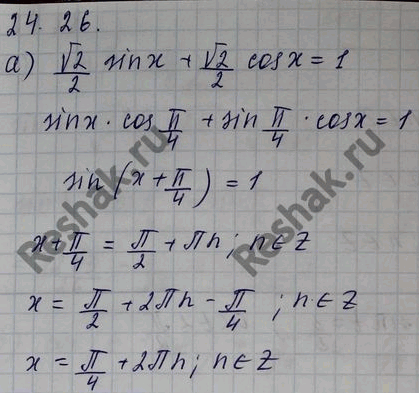 24. 26.
а) √2/2 sinx + √2/2 cosx = 1
sinx · cos π/4 + sin π/4 · cosx = 1
sin(x + π/4) = 1
x + π/4 = π/2 + πn; n∈Z
x = π/2 + 2πn - π/4; n∈Z
x = π/4 + 2πn; n∈Z
Reshak.ru
Reshak.ru